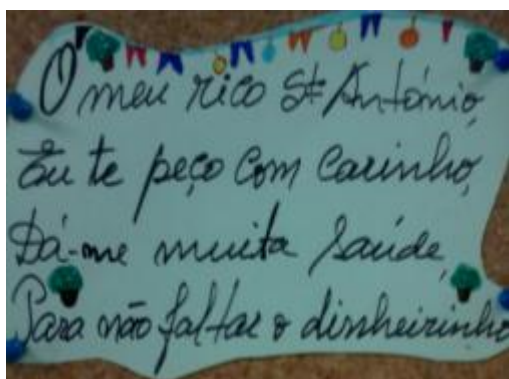 O meu rico St António,
Eu te peço com carinho,
Dá-me muita saúde,
Para não faltar o dinheirinho